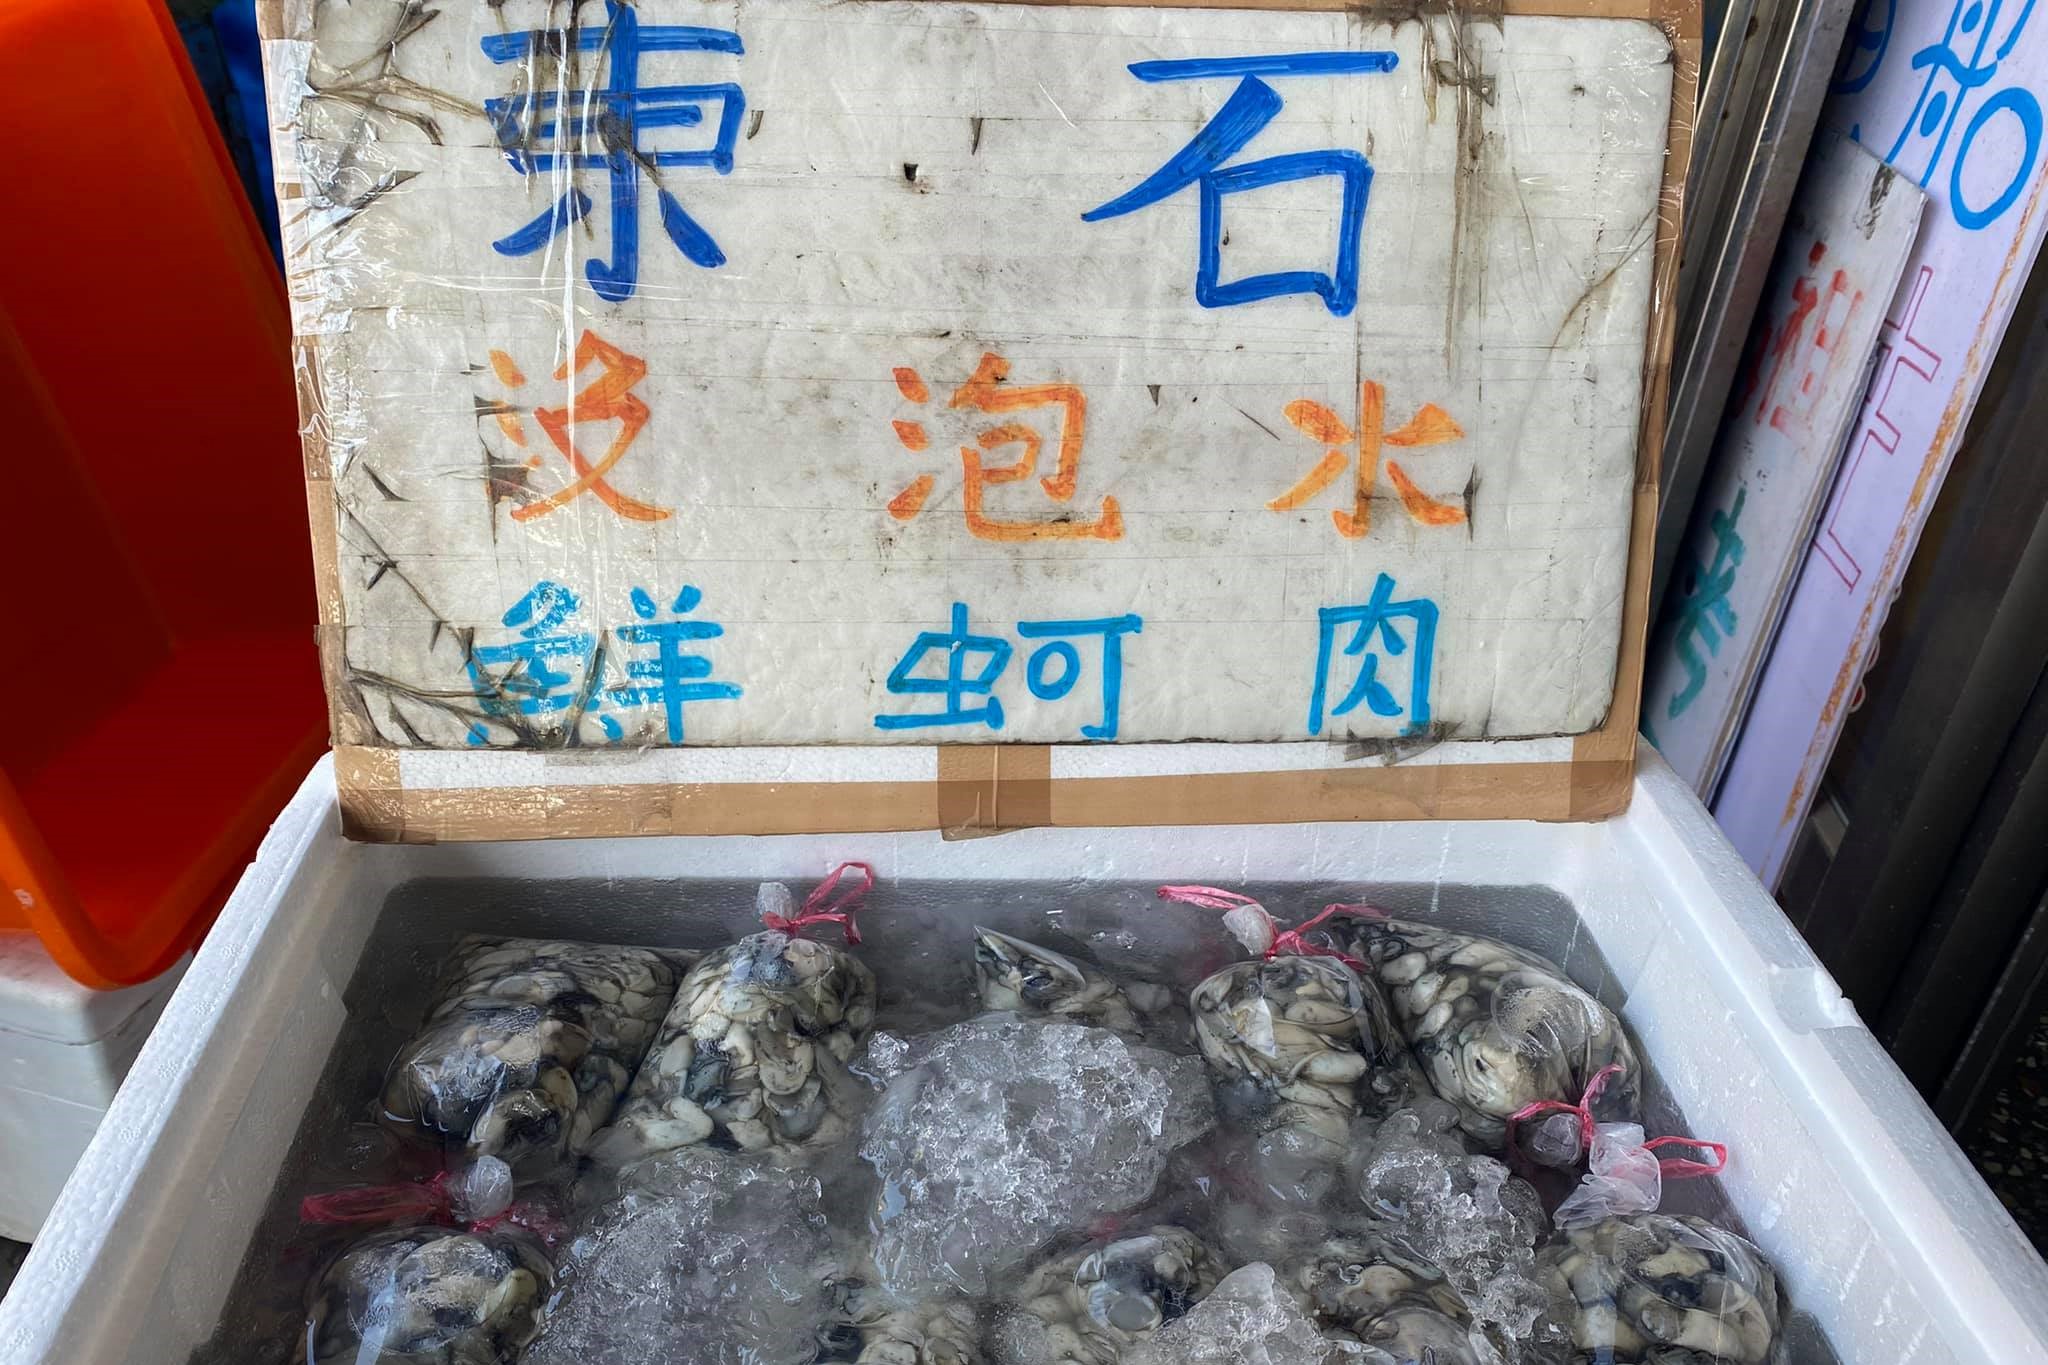 東石
没泡水
鮮蚵肉